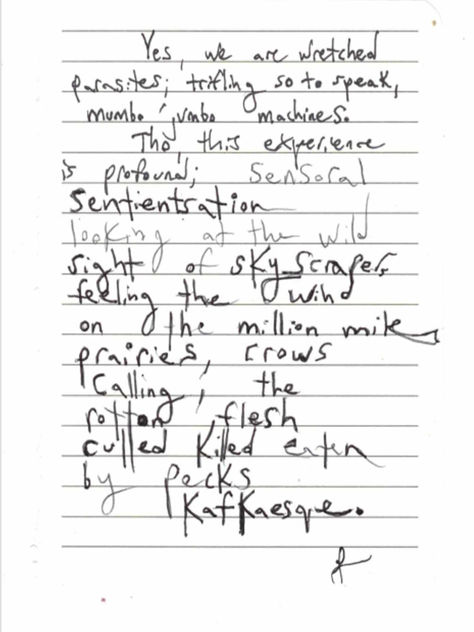 Yes, we are wretched
parasites; trifling so to speak,
mumbo jumbo machines.
Tho, this experience
is profound; Sensoral
Sentientsration
looking at the wild
sight of skyscraper,
feeling the wind
on the million mile
prairies, crows
Calling, the
rotton flesh
culled killed eaten
by pecks
Kafkaesque.